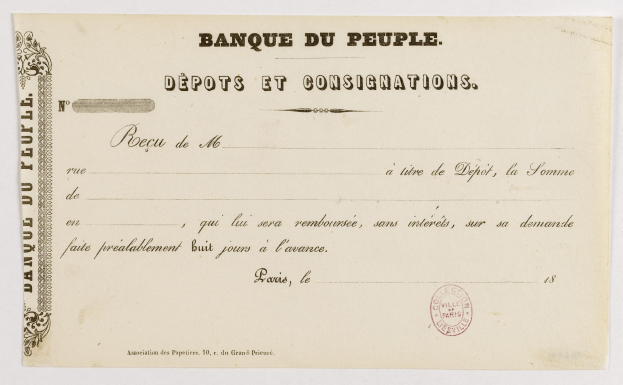 BANQUE DU PEUPLE.
DÉPOTS ET CONSIGNATIONS.
No
Reçu de M
rue à titre de Dépôt, la Somme
de
en , qui lui sera remboursée, sans intérêts, sur sa demande
faite préalablement huit jours à l'avance.
Paris, le 18
Association des Papetiers, 10, r. du Grand-Prieuré.
BANQUE DU PEUPLE.
COLLECTION
VILLE
DE
PARIS
LIESVILLE